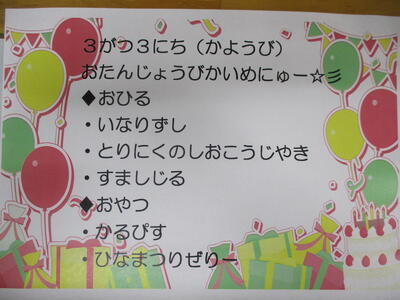 ３がつ３にち（かようび）
おたんじょうびかいめにゅー☆彡
◆おひる
・いなりずし
・とりにくのしおこうじやき
・すましじる
◆おやつ
・かるぴす
・ひなまつりぜりー